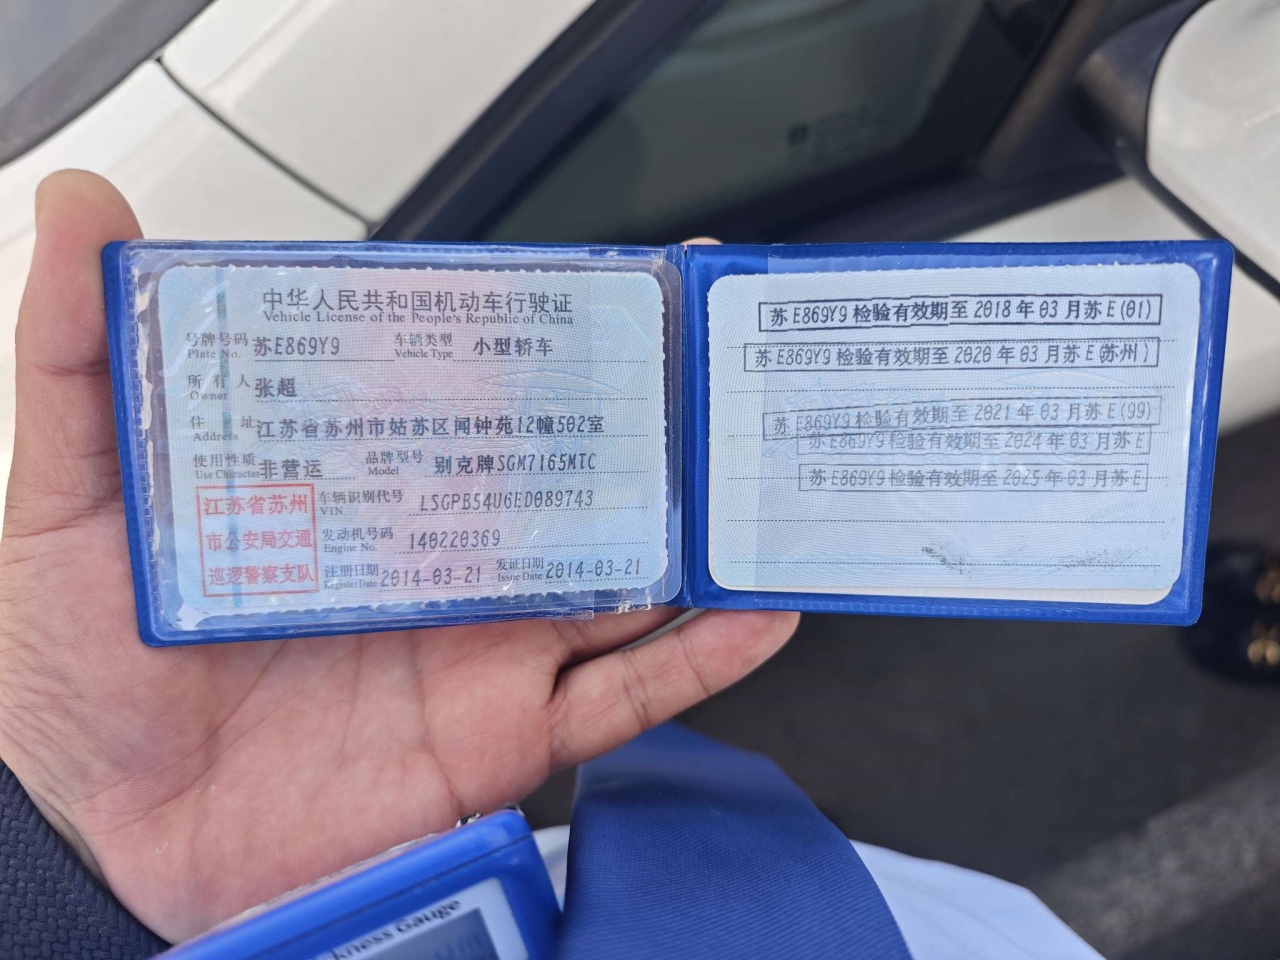 中华人民共和国机动车行驶证
Vehicle License of the People's Republic of China
号牌号码 苏E869Y9 车辆类型 小型轿车
Plate No. Vehicle Type
所有人 张超
Owner
住址 江苏省苏州市姑苏区闻钟苑12幢502室
Address
使用性质 非营运 品牌型号 别克牌SGM7165MTC
Use Character Model
江苏省苏州
市公安局交通
巡逻警察支队
车辆识别代号 LSGPB54U6ED089743
VIN
发动机号码 140220369
Engine No.
注册日期 2014-03-21 发证日期 2014-03-21
Register Date Issue Date
苏E869Y9检验有效期至2018年03月苏E(01)
苏E869Y9检验有效期至2020年03月苏E(苏州)
苏E869Y9检验有效期至2021年03月苏E(99)
苏E869Y9检验有效期至2024年03月苏E
苏E869Y9检验有效期至2025年03月苏E
kness Gauge